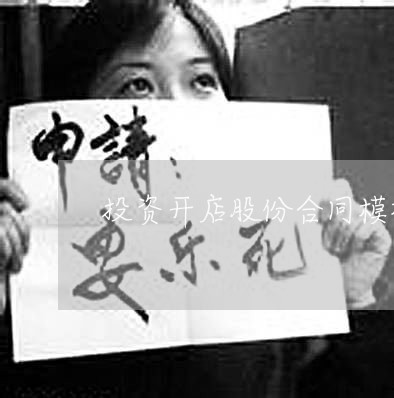 申請：
投资开店股份合同模
安乐死